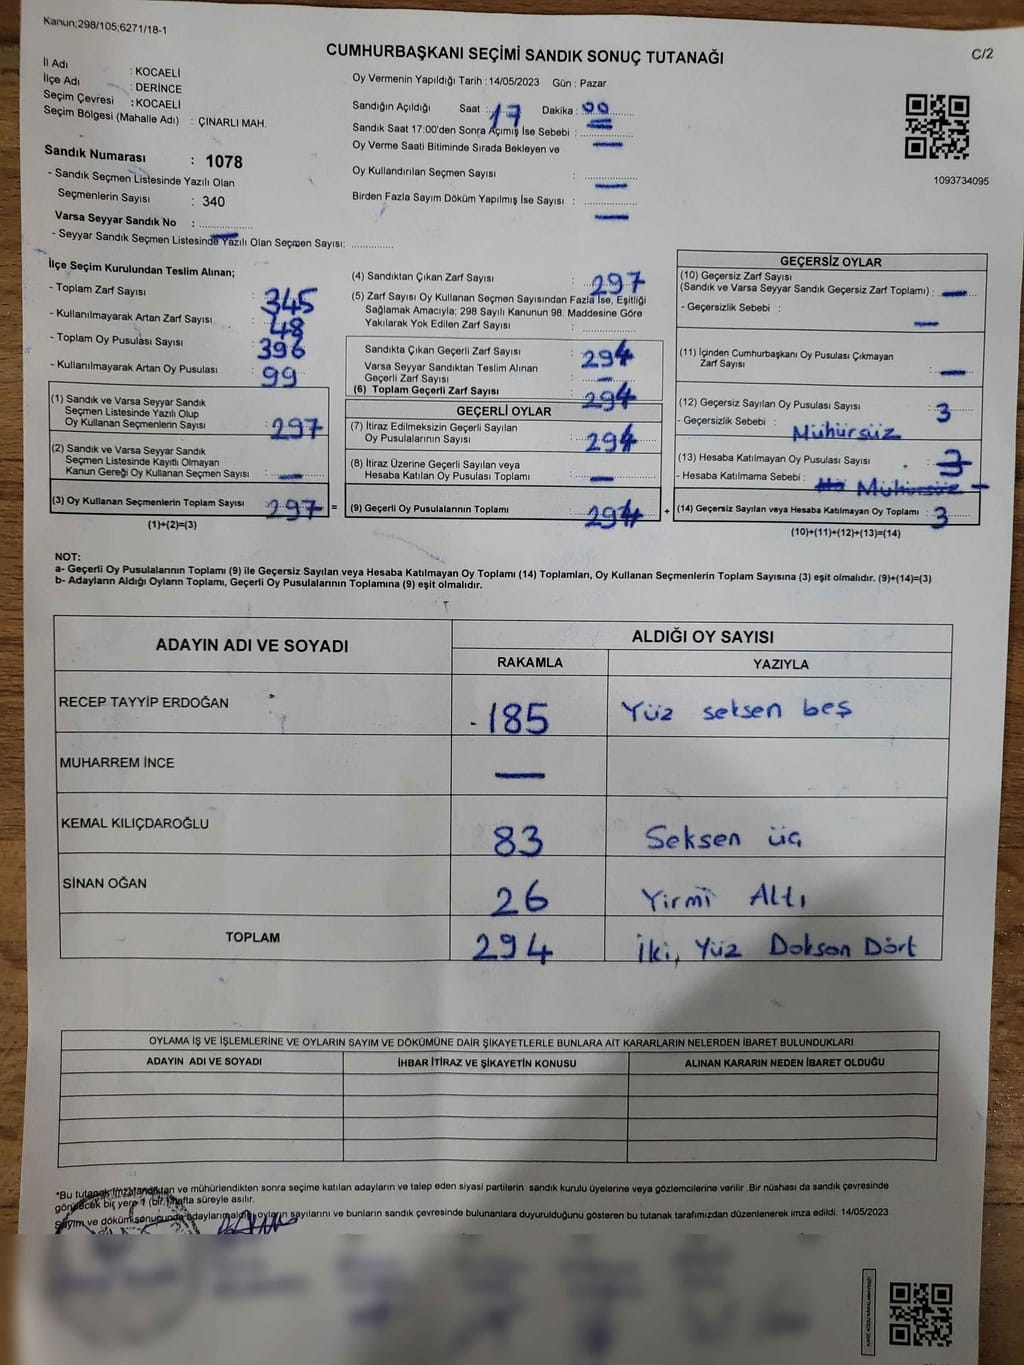 Kanun;298/105;6271/18-1
C/2
CUMHURBAŞKANI SEÇİMİ SANDIK SONUÇ TUTANAĞI
İl Adı : KOCAELİ
İlçe Adı : DERİNCE
Seçim Çevresi : KOCAELİ
Seçim Bölgesi (Mahalle Adı) : ÇINARLI MAH.
Sandık Numarası : 1078
- Sandık Seçmen Listesinde Yazılı Olan
Seçmenlerin Sayısı : 340
Varsa Seyyar Sandık No : —
- Seyyar Sandık Seçmen Listesinde Yazılı Olan Seçmen Sayısı: ..............
Oy Vermenin Yapıldığı Tarih : 14/05/2023 Gün : Pazar
Sandığın Açıldığı Saat : 17 Dakika : 00
Sandık Saat 17:00'den Sonra Açımış İse Sebebi : —
Oy Verme Saati Bitiminde Sırada Bekleyen ve —
Oy Kullandırılan Seçmen Sayısı : —
Birden Fazla Sayım Döküm Yapılmış İse Sayısı : —
1093734095
İlçe Seçim Kurulundan Teslim Alınan;
- Toplam Zarf Sayısı : 345
- Kullanılmayarak Artan Zarf Sayısı : 48
- Toplam Oy Pusulası Sayısı : 396
- Kullanılmayarak Artan Oy Pusulası : 99
(1) Sandık ve Varsa Seyyar Sandık
Seçmen Listesinde Yazılı Olup
Oy Kullanan Seçmenlerin Sayısı : 297
(2) Sandık ve Varsa Seyyar Sandık
Seçmen Listesinde Kayıtlı Olmayan
Kanun Gereği Oy Kullanan Seçmen Sayısı : —
(3) Oy Kullanan Seçmenlerin Toplam Sayısı : 297 =
(1)+(2)=(3)
(4) Sandıktan Çıkan Zarf Sayısı : 297
(5) Zarf Sayısı Oy Kullanan Seçmen Sayısından Fazla İse, Eşitliği
Sağlamak Amacıyla; 298 Sayılı Kanunun 98. Maddesine Göre
Yakılarak Yok Edilen Zarf Sayısı : ..............
Sandıkta Çıkan Geçerli Zarf Sayısı : 294
Varsa Seyyar Sandıktan Teslim Alınan
Geçerli Zarf Sayısı : —
(6) Toplam Geçerli Zarf Sayısı : 294
GEÇERLİ OYLAR
(7) İtiraz Edilmeksizin Geçerli Sayılan
Oy Pusulalarının Sayısı : 294
(8) İtiraz Üzerine Geçerli Sayılan veya
Hesaba Katılan Oy Pusulası Toplamı : —
(9) Geçerli Oy Pusulalarının Toplamı : 294 +
GEÇERSİZ OYLAR
(10) Geçersiz Zarf Sayısı
(Sandık ve Varsa Seyyar Sandık Geçersiz Zarf Toplamı) : —
- Geçersizlik Sebebi : —
(11) İçinden Cumhurbaşkanı Oy Pusulası Çıkmayan
Zarf Sayısı : —
(12) Geçersiz Sayılan Oy Pusulası Sayısı : 3
- Geçersizlik Sebebi : Mühürsüz
(13) Hesaba Katılmayan Oy Pusulası Sayısı : 3
- Hesaba Katılmama Sebebi : Mühürsüz —
(14) Geçersiz Sayılan veya Hesaba Katılmayan Oy Toplamı : 3
(10)+(11)+(12)+(13)=(14)
NOT:
a- Geçerli Oy Pusulalarının Toplamı (9) ile Geçersiz Sayılan veya Hesaba Katılmayan Oy Toplamı (14) Toplamları, Oy Kullanan Seçmenlerin Toplam Sayısına (3) eşit olmalıdır. (9)+(14)=(3)
b- Adayların Aldığı Oyların Toplamı, Geçerli Oy Pusulalarının Toplamına (9) eşit olmalıdır.
ADAYIN ADI VE SOYADI ALDIĞI OY SAYISI
RAKAMLA YAZIYLA
RECEP TAYYİP ERDOĞAN 185 Yüz seksen beş
MUHARREM İNCE —
KEMAL KILIÇDAROĞLU 83 Seksen üç
SİNAN OĞAN 26 Yirmi Altı
TOPLAM 294 İki, Yüz Doksan Dört
OYLAMA İŞ VE İŞLEMLERİNE VE OYLARIN SAYIM VE DÖKÜMÜNE DAİR ŞİKAYETLERLE BUNLARA AİT KARARLARIN NELERDEN İBARET BULUNDUKLARI
ADAYIN ADI VE SOYADI İHBAR İTİRAZ VE ŞİKAYETİN KONUSU ALINAN KARARIN NEDEN İBARET OLDUĞU
*Bu tutanak imzalandıktan ve mühürlendikten sonra seçime katılan adayların ve talep eden siyasi partilerin sandık kurulu üyelerine veya gözlemcilerine verilir .Bir nüshası da sandık çevresinde
görülecek bir yere 1 (bir) hafta süreyle asılır.
Sayım ve döküm sonucunda adayların aldığı oyların sayılarını ve bunların sandık çevresinde bulunanlara duyurulduğunu gösteren bu tutanak tarafımızdan düzenlenerek imza edildi. 14/05/2023